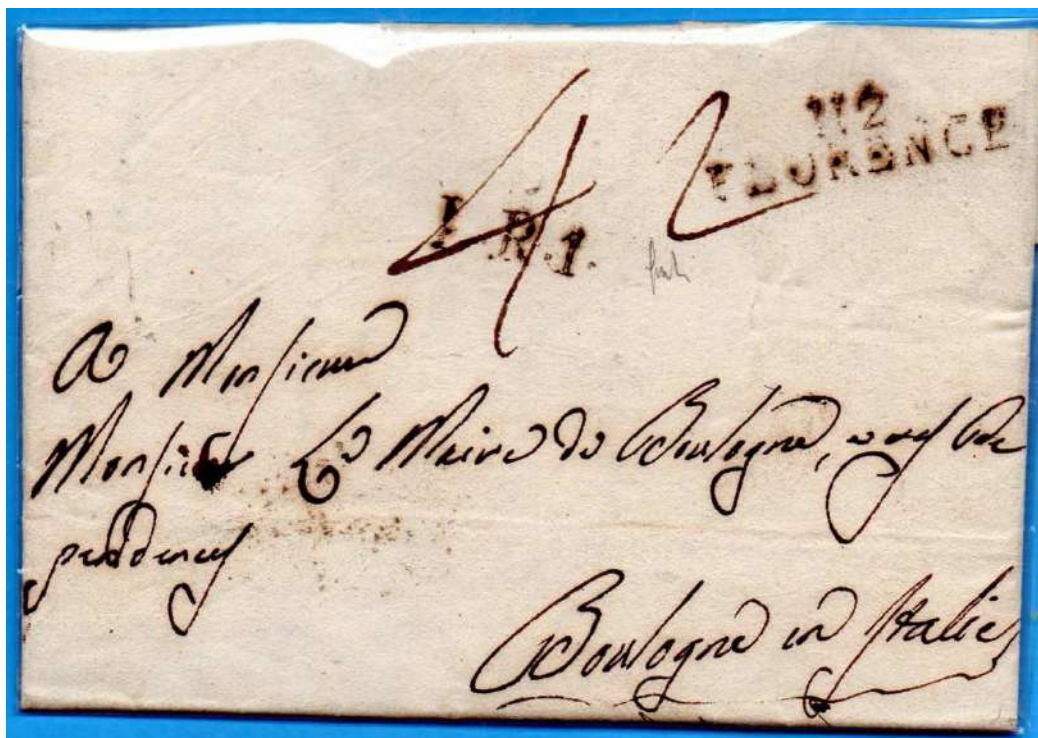 112
FLORENCE
4 2
I.R.1.
A Monsieur
Monsieur Le Maire de Boulogne, & ses De
pendences
Boulogne en Italie